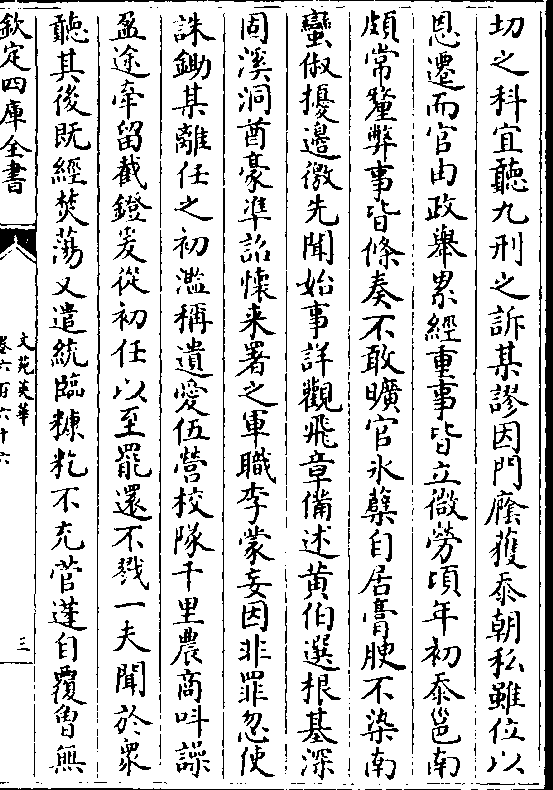 切之科宜聽九刑之訴某謬因門廕獲忝朝私雖位以
恩遷而官由政舉累經重事皆立微勞頃年初忝邕南
頗常釐弊事皆條奏不敢曠官氷蘖自居膏腴不染南
蠻俶擾邊徼先聞始事詳觀飛章備述黄伯選根基深
固溪洞酋豪凖詔懷来署之軍職李蒙妄因非罪忽使
誅鋤某離任之初濫稱遺愛伍營校隊千里農商呌譟
盈途牽留截鐙爰從初任以至罷還不戮一夫聞於衆
聽其後既經焚蕩又遣統臨糠籺不充菅蓬自覆曾無
欽定四庫全書
文苑英華
卷六百六十六
三